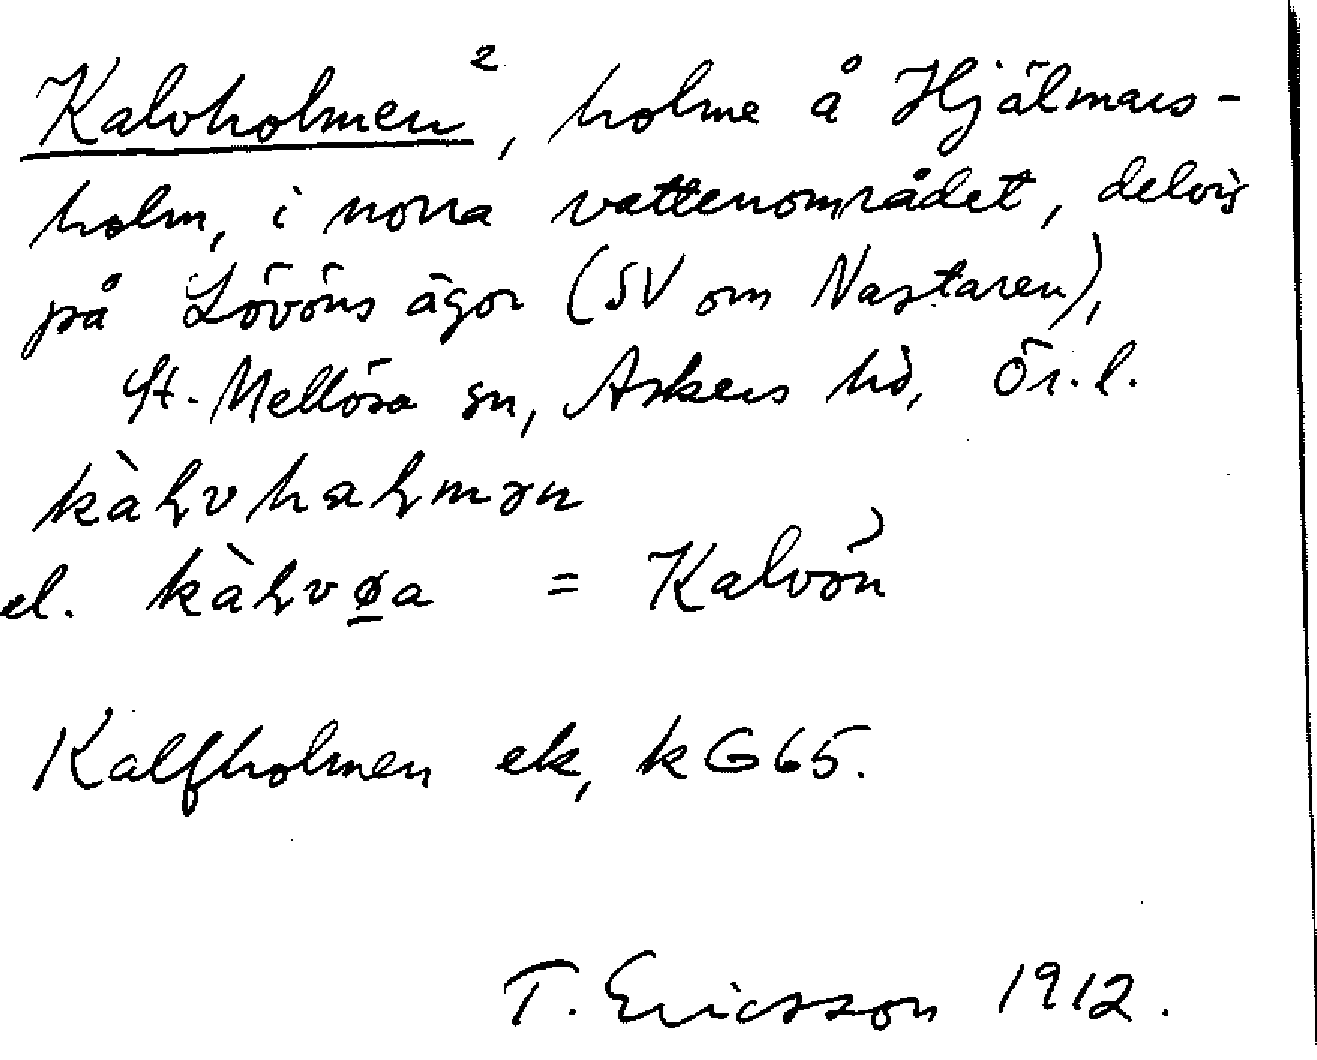 Kalvholmen², holme å Hjälmars-
holm, i norra vattenområdet, delvis
på Lövöns ägor (SV om Nastaren),
St. Mellösa sn, Askers hd, Ör. l.
kàɫvhaɫmən
el. kàɫvø̲a = Kalvön
Kalfholmen ek, kG65.
T. Ericsson 1912.